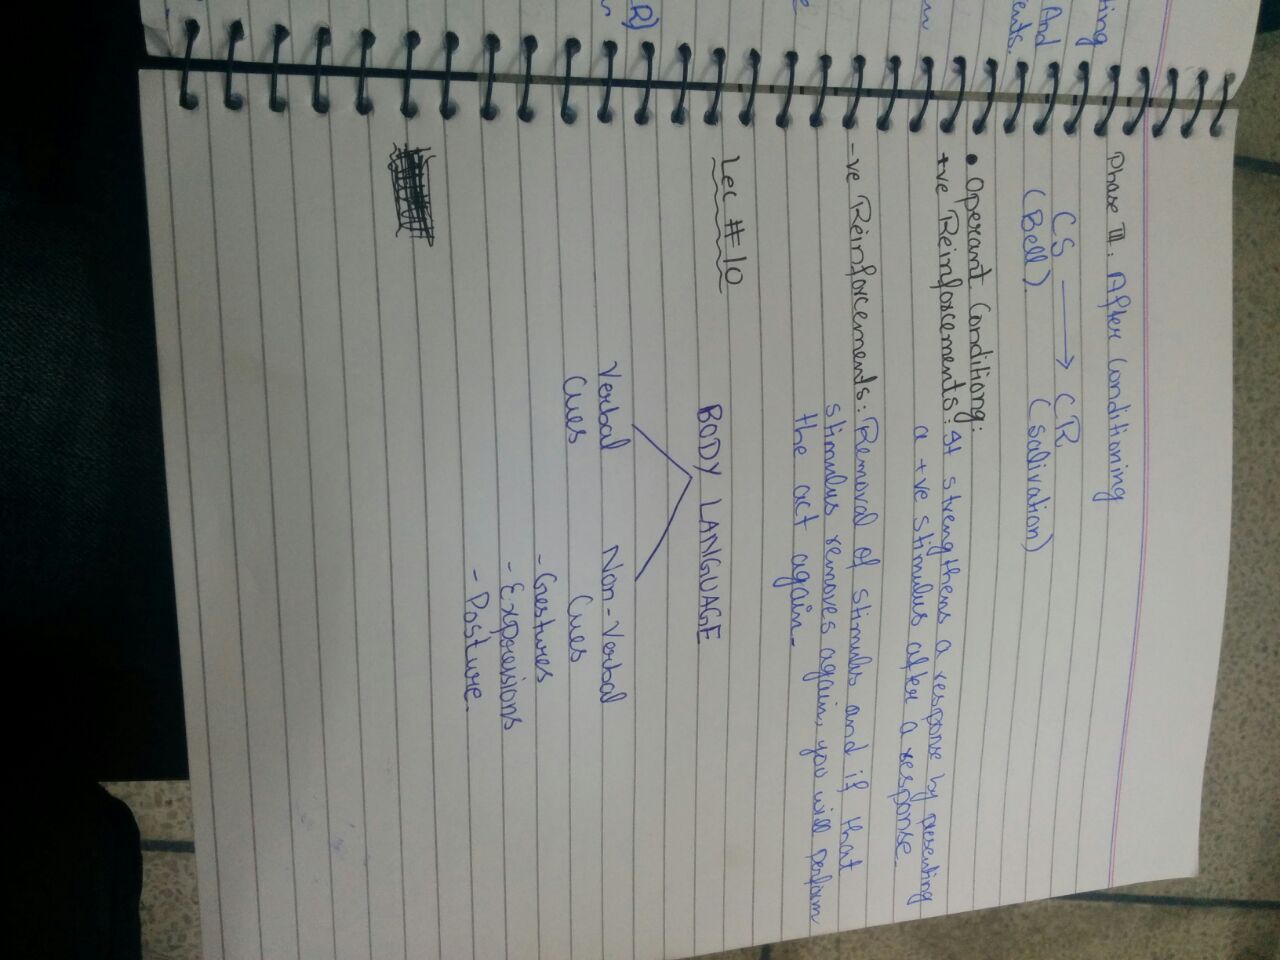 ting
And
ents.
R)
Phase III: After Conditioning
CS → CR
(Bell). (Salivation)
• Operant Conditiong:
+ve Reinforcements: It strengthens a response by presenting
a +ve stimulus after a response.
-ve Reinforcements: Removal of stimulus and if that
stimulus removes again, you will perform
the act again-
Lec # 10
BODY LANGUAGE
Verbal Non-Verbal
Cues Cues
- Gestures
- Expressions
- Posture.